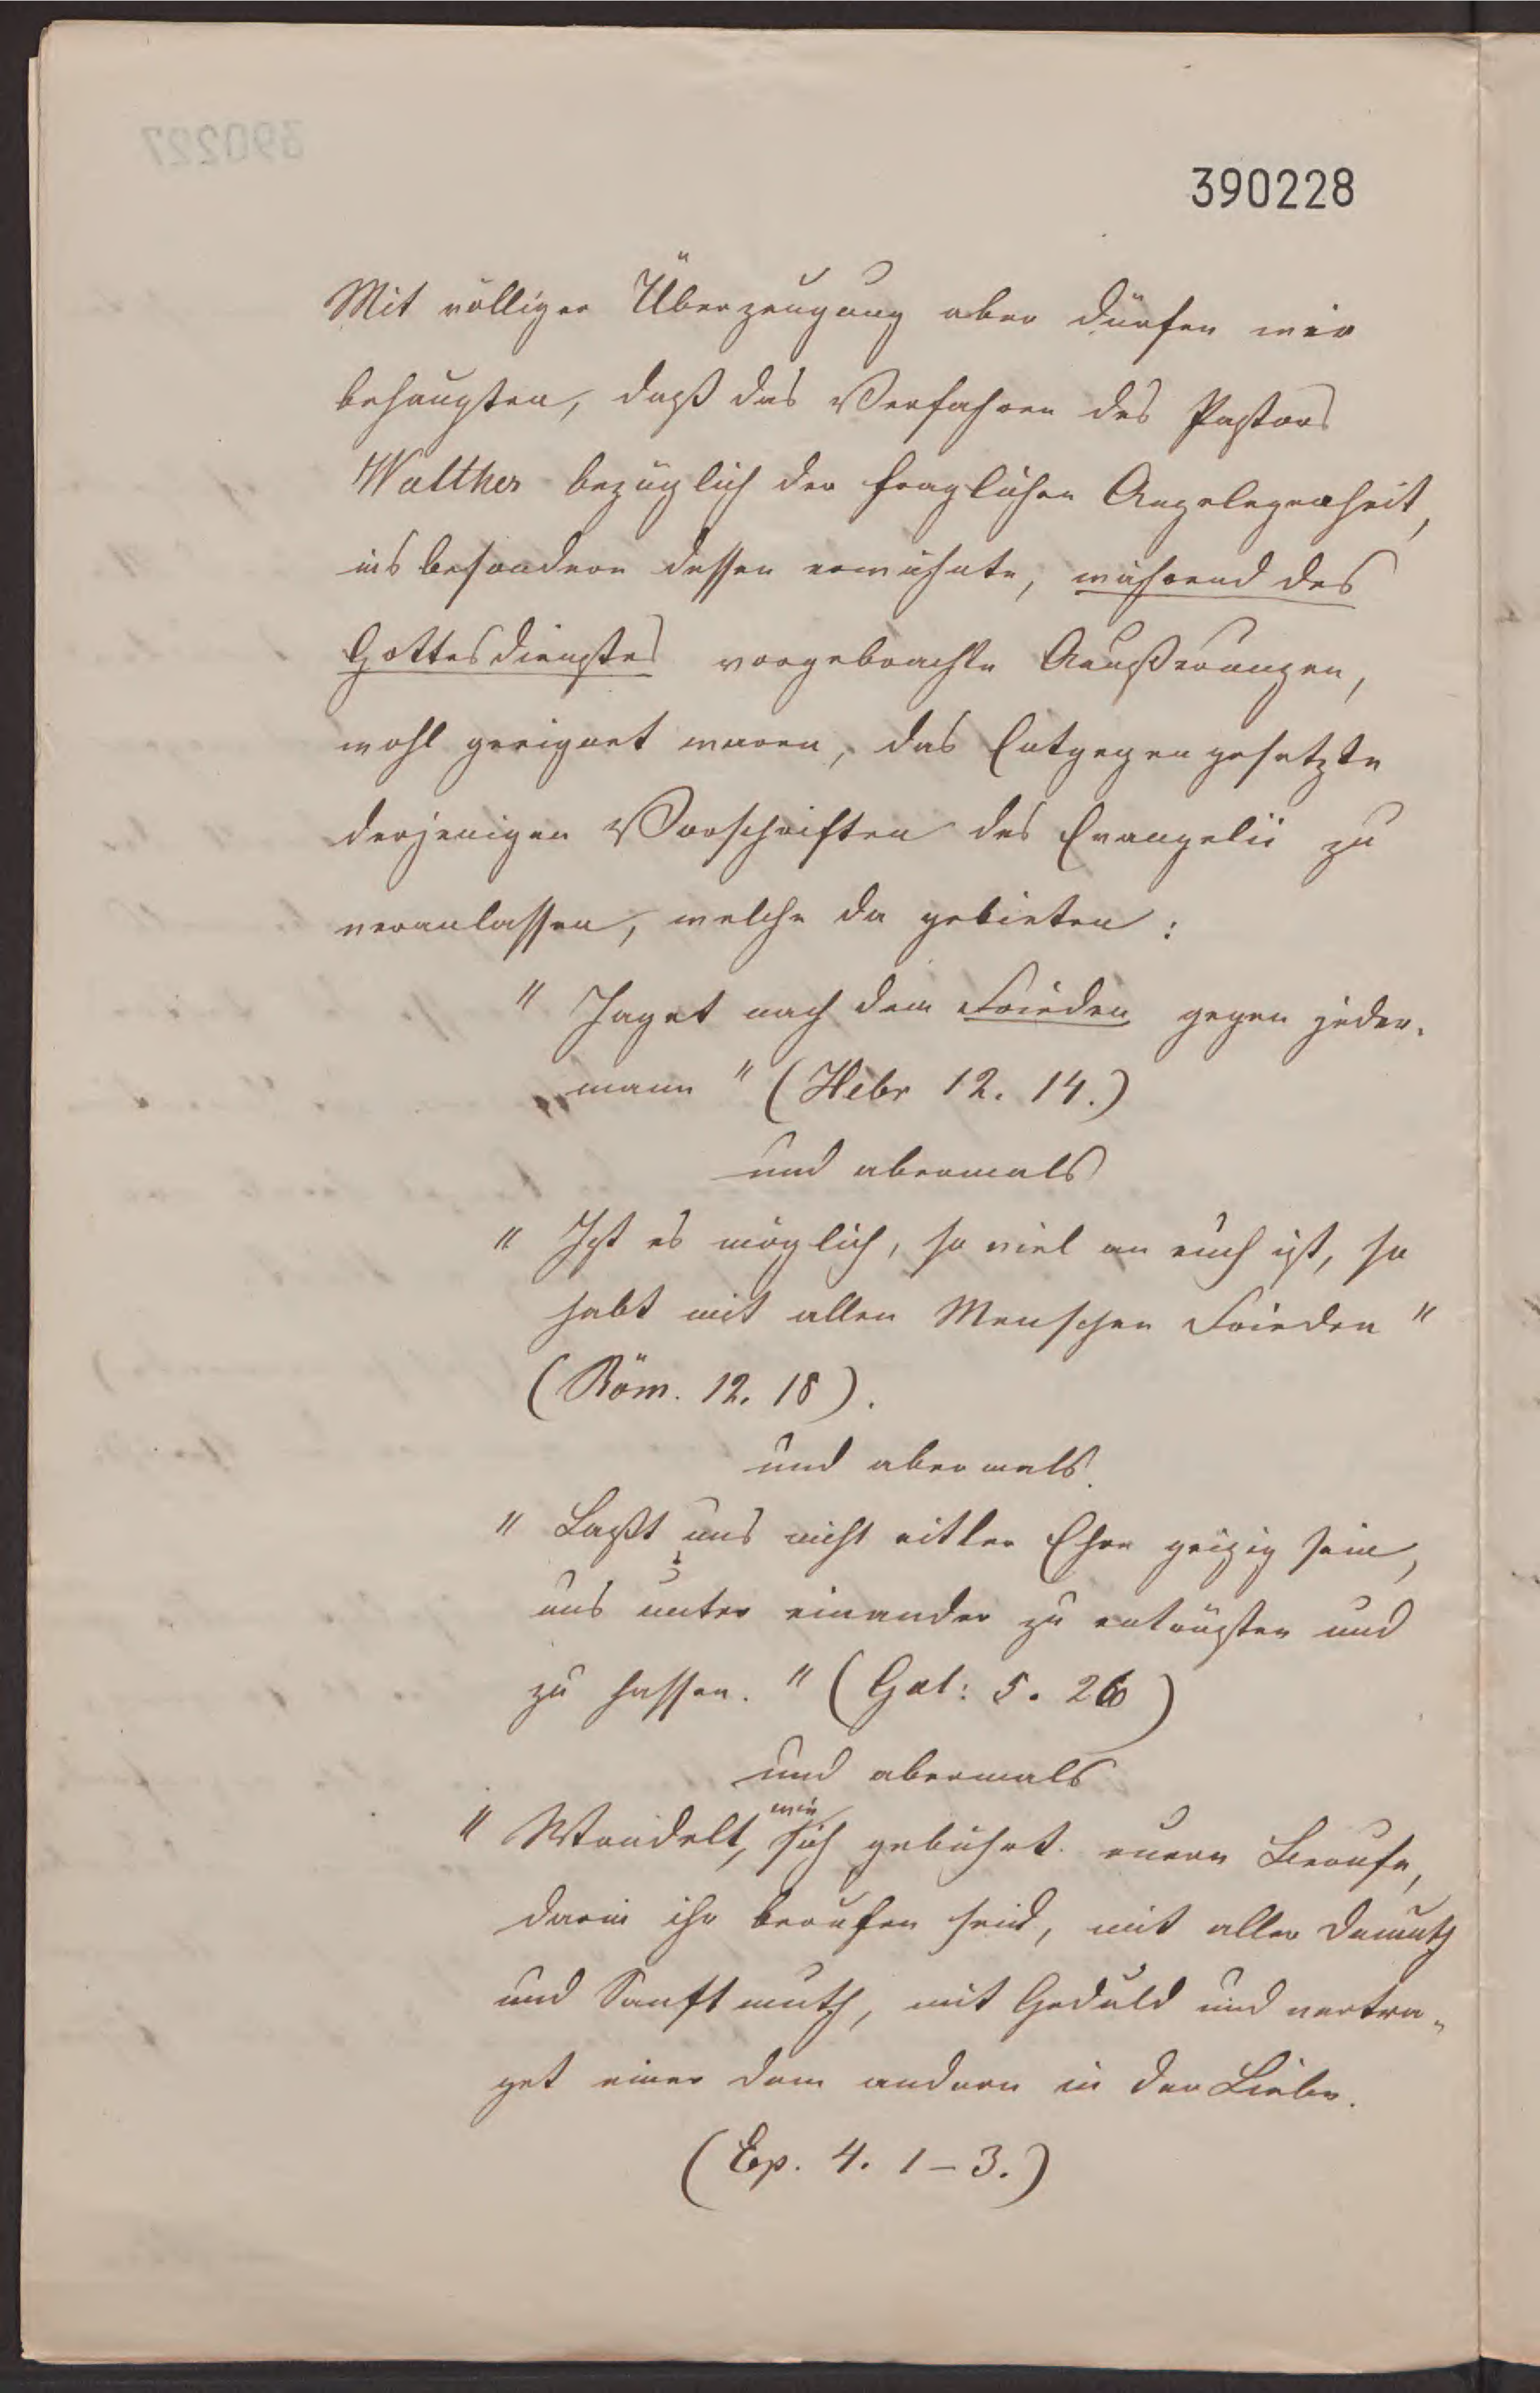 390227
390228
Mit völliger Überzeugung aber dürfen wir
behaupten, daß das Verfahren des Pastors
Walther bezüglich der fraglichen Angelegenheit,
insbesondere dessen erwähnte, während des
Gottesdienstes vorgebrachte Aeußerungen,
wohl geeignet waren, das Entgegengesetzte
derjenigen Vorschriften des Evangelii zu
veranlassen, welche da gebieten:
" Jaget nach dem Frieden gegen jeder-
mann " (Hebr 12. 14.)
und abermals
" Ist es möglich, so viel an euch ist, so
habt mit allen Menschen Frieden "
(Röm. 12. 18).
und abermals
" Laßt uns nicht eitler Ehre geizig sein,
uns unter einander zu entrüsten und
zu hassen. " (Gal: 5. 26)
und abermals
" Wandelt, wie sich gebührt eurem Berufe,
darin ihr berufen seid, mit aller Demuth
und Sanftmuth, mit Geduld und vertra-
get einer dem andern in der Liebe.
(Ep. 4. 1-3.)